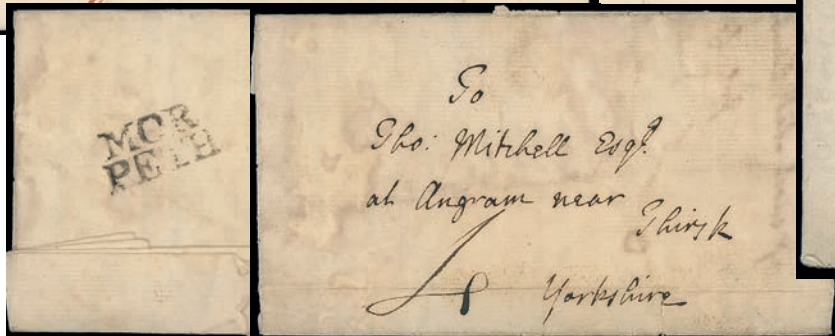 MOR
PETH
To
Tho: Mitchell Esqr.
at Angram near
Thirsk
Yorkshire